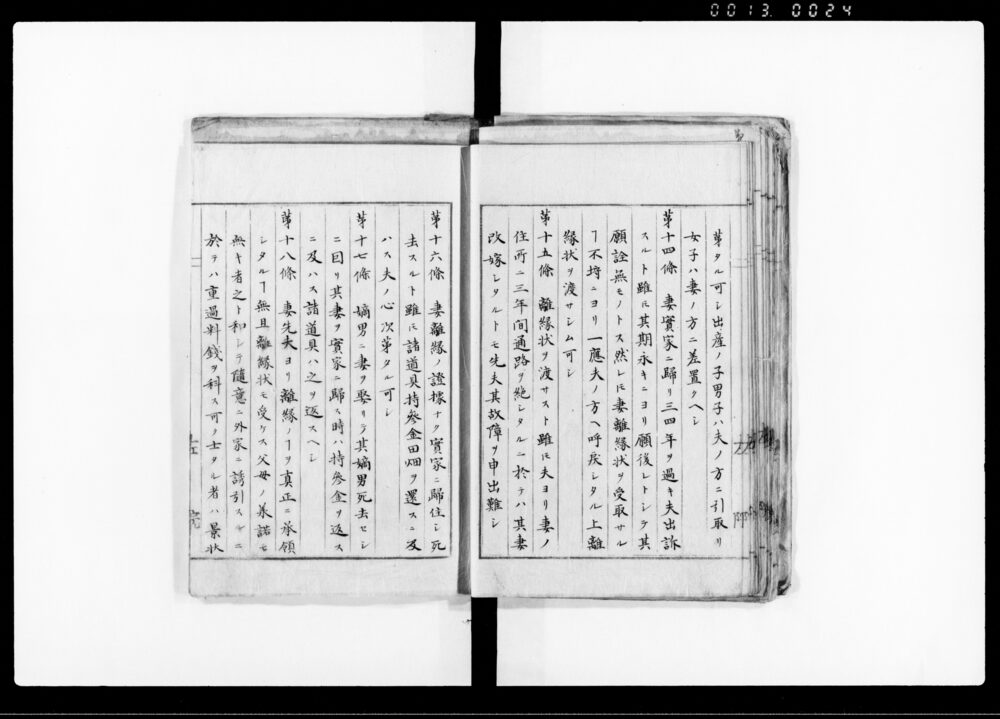 0013. 0024
第タル可シ出産ノ子男子ハ夫ノ方ニ引取リ
女子ハ妻ノ方ニ差置クヘシ
第十四條　妻實家ニ歸リ三四年ヲ過キ夫出訴
スルト雖𪜈其期永キニヨリ願後レトシテ其
願詮無モノトス然レ𪜈妻離縁状ヲ受取サル
ヿ不埒ニヨリ一應夫ノ方ヘ呼戻シタル上離
縁状ヲ渡サシム可シ
第十五條　離縁状ヲ渡サスト雖𪜈夫ヨリ妻ノ
住所ニ三年間通路ヲ絶シタルニ於テハ其妻
改嫁シタルトモ先夫其故障ヲ申出難シ
第十六條　妻離縁ノ證據ナク實家ニ歸住シ死
去スルト雖𪜈諸道具持參金田畑ヲ還スニ及
ハス夫ノ心次第タル可シ
第十七條　嫡男ニ妻ヲ娶リテ其嫡男死去セシ
ニ因リ其妻ヲ實家ニ歸ス時ハ持參金ヲ返ス
ニ及ハス諸道具ハ之ヲ返スヘシ
第十八條　妻先夫ヨリ離縁ノヿヲ真正ニ承領
シタルヿ無且離縁状モ受ケス父母ノ承諾モ
無キ者之ト和シテ隨意ニ外家ニ誘引スルニ
於テハ重過料錢ヲ科ス可ノ士タル者ハ景状